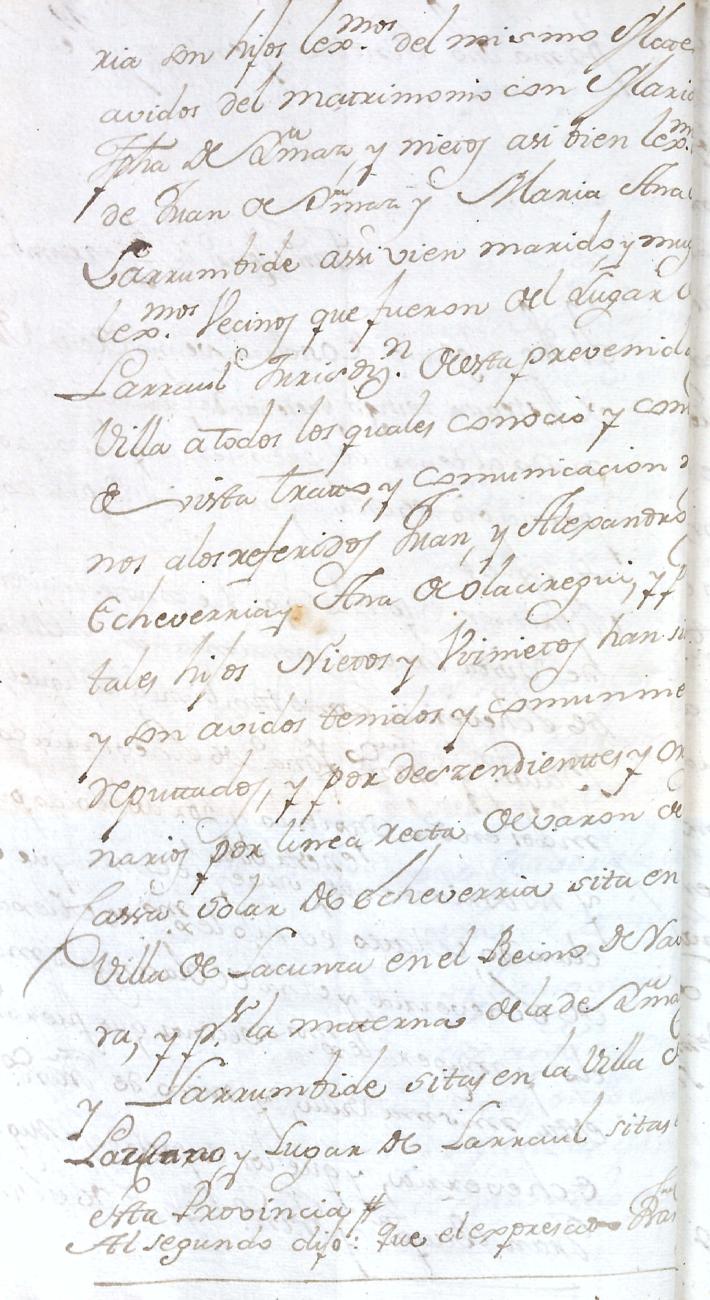 ria son hijos lexmos. del mismo
avidos del matrimonio con Maria
Jpha de y nietos asi bien lexm.
de Juan de y Maria Ana
Larrumbide assi vien marido y mug
lexmos. Vecinos que fueron del Lugar
Larraul Jurisdn. de esta prevenida
Villa a todos los quales conocio y com
de vista tratto, y comunicacion
nos alos referidos Juan, y Alexandro
Echeverria y Ana de Olaciregui, y
tales hijos Nietos y Vinietos han si
y son avidos tenidos y comunme
Reputtados, y por deszendienttes y ori
narios por linea recta de varon de
Cassa Solar de Echeverria sita en
Villa de Lacunza en el Reino de Nav
ra, y pr. la materna de la de
y Larrumbide sitas en la Villa
y Lugar de Larraul sitas
esta Provincia #
Al segundo dijo: Que el expresado